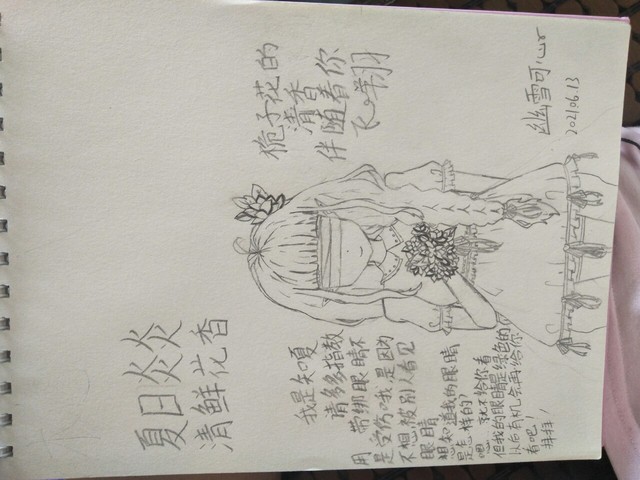 夏日炎炎
清鲜花香
栀子花的
清香
伴随着你
飞翔
我是
请多多指教
用带绑眼睛不
是受伤哦是因
不想被别人看见
眼睛
想知道我的眼睛
是怎样的?
嗯 就不给你看
但我的眼睛是绿色的
以后有机会再给你
看吧!
拜拜!
幽雪可心r
2021.06.13